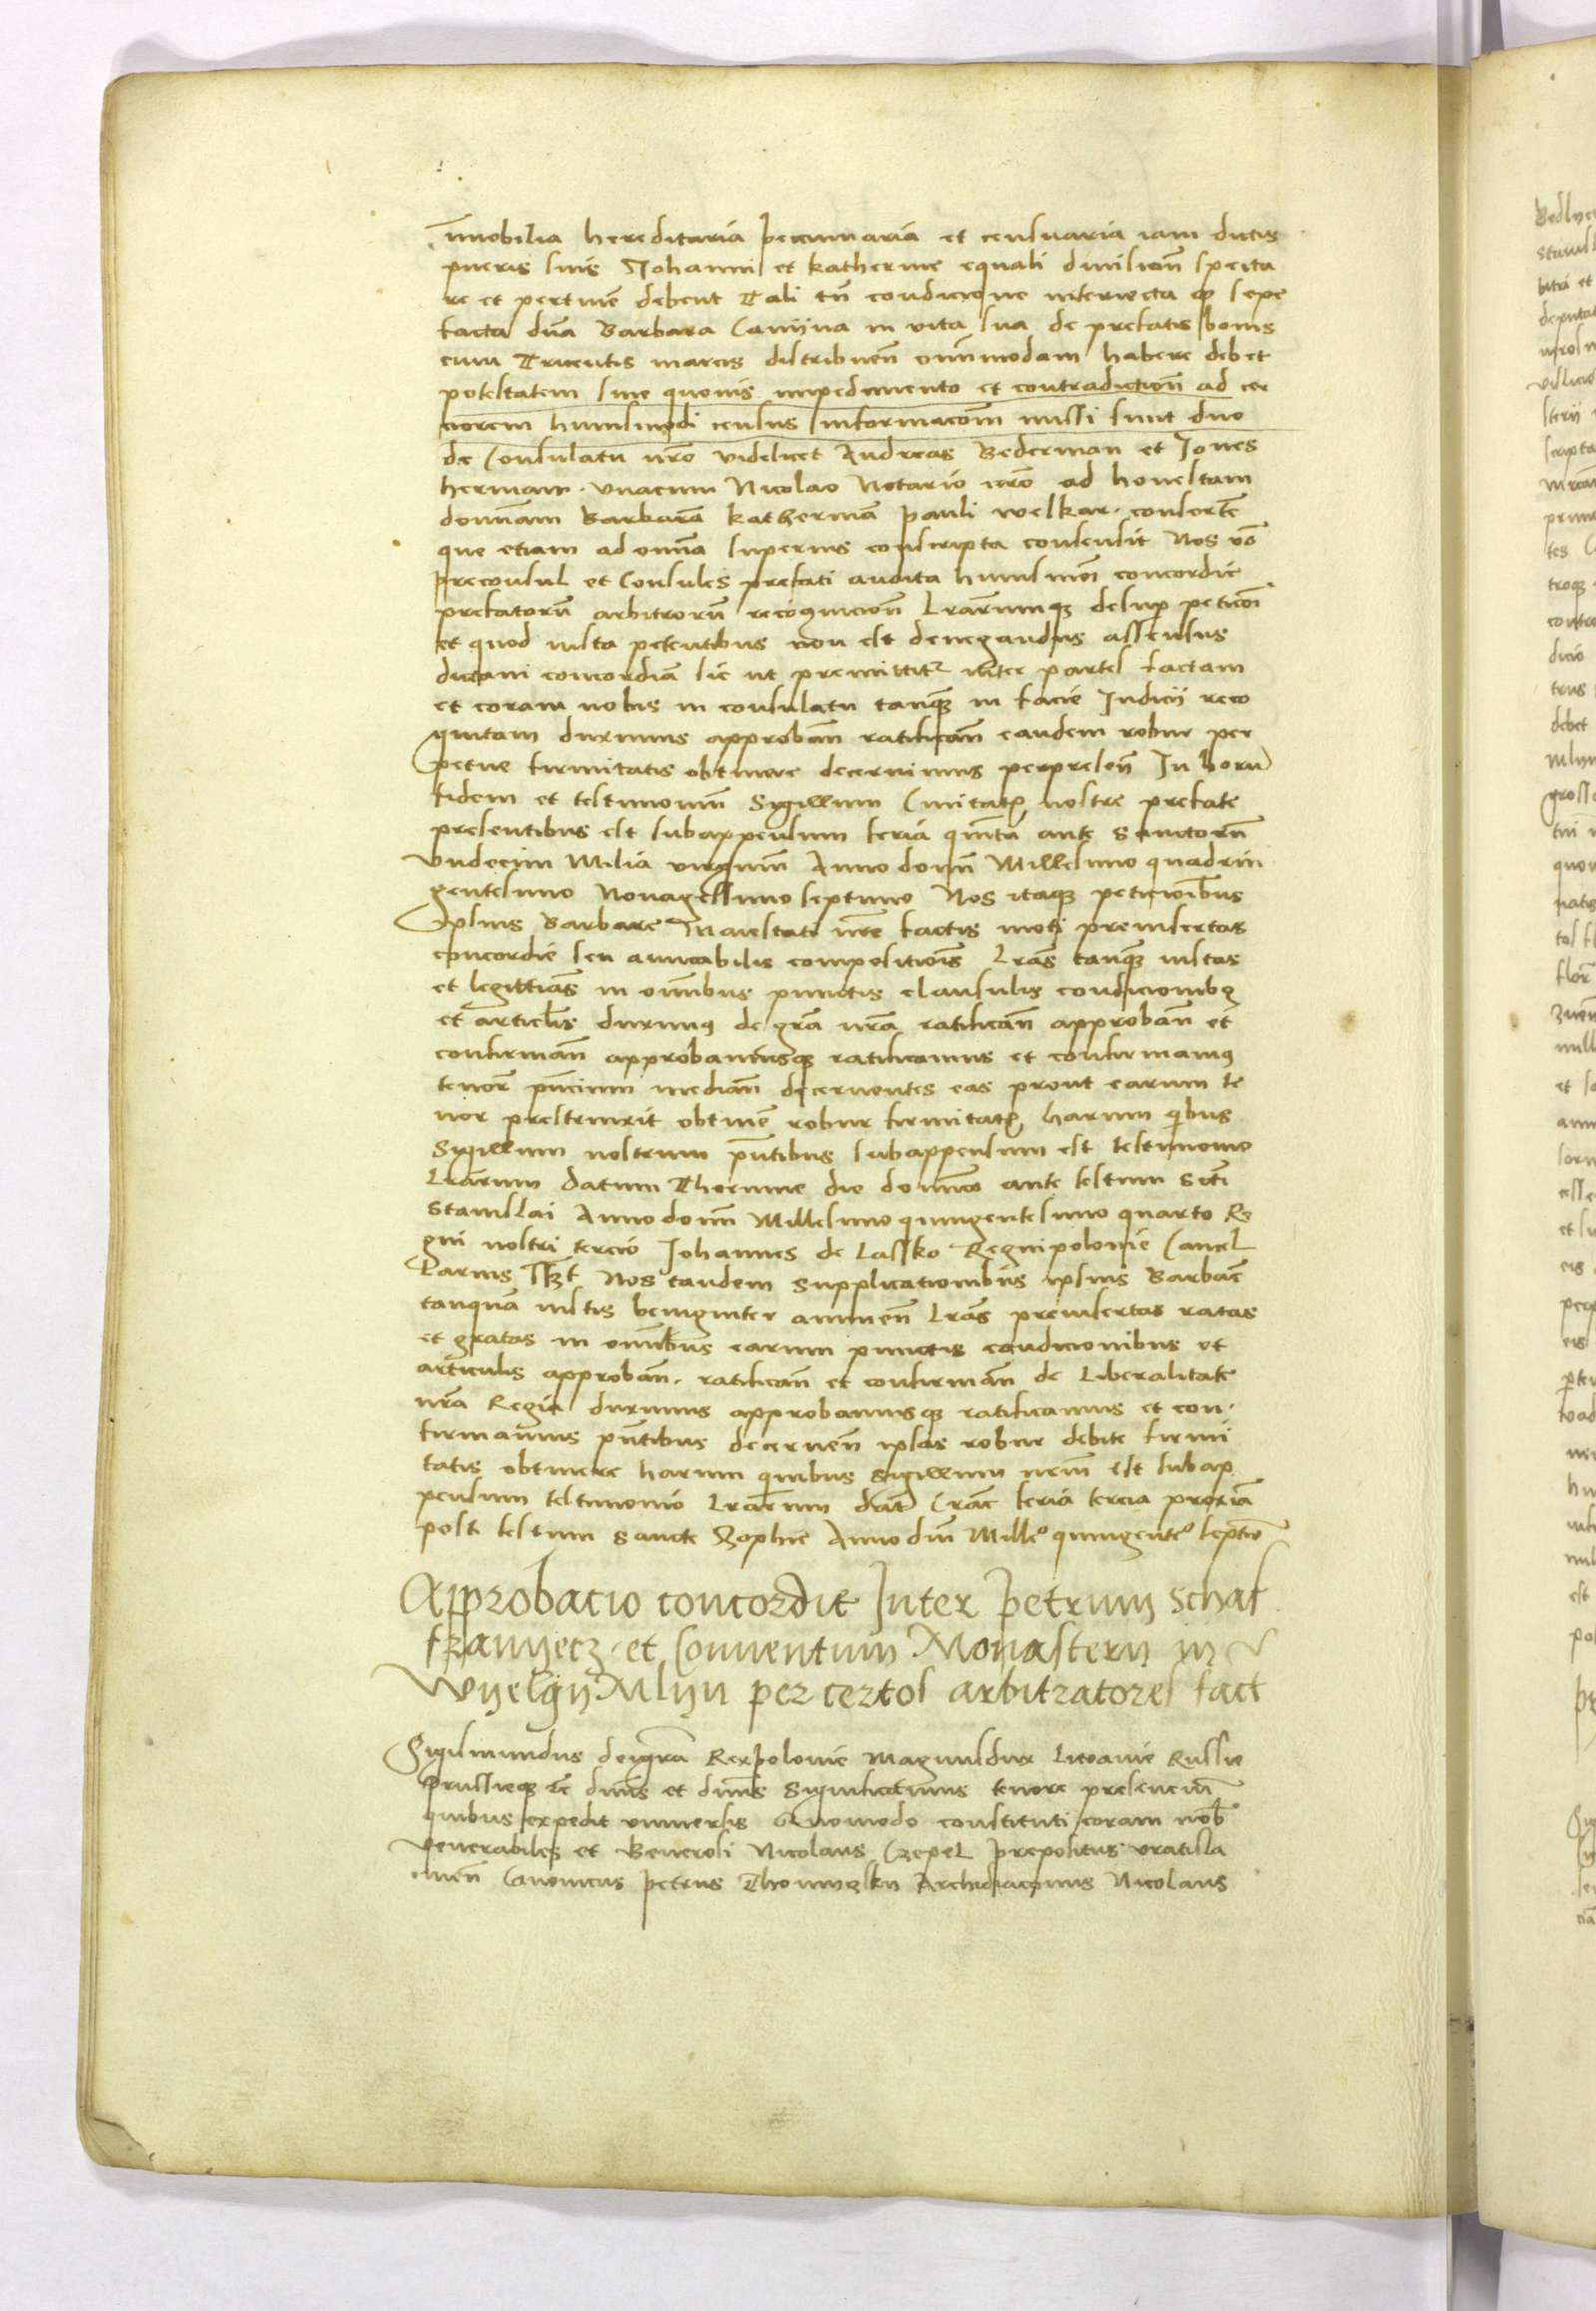 immobilia hereditaria pecuniaria et censuaria iam dictis
pueris suis Johanni et katherine equali diuisioñ specta
re et pertineñ debent Tali tñ condicione interiecta ꝙ sepe
facta dña Barbara Canijna in vita sua de prefatis bonis
cum Tricentis marcis distribueñ omnimodam habere debet
potestatem sine quouis impedimento et contradictioñ ad cer
ciorem huiusmodi census informacoīm missi sunt duo
de Consulatu nr̄o videlicet Andreas Bederman et Jones
herman. vnacum Nicolao Notario nr̄o ad honestam
domnam Barbarā katherinā pauli welkar. consortē
que etiam ad omīa superius conscripta consensit Nos v̄o
preconsul et Consules prefati audita huiusmōi concordie
prefatorū arbitrorū recognicioñ Lrārumqꝫ desup peticōi
et quod iusta petentibus non est denegandus assensus
dictam concordiā sic ut premittitur inter partes factam
et coram nobis in consulatu tanqꝫ in facie Judicij reco
gnitam duximus approbañ ratificañ eandem robur per
petue firmitatis obtinere decernimus perpreseñ In horū
fidem et testimoniū Sygillum Ciuitatꝭ nostre prefate
presentibus est subappensum feria quīta ante Sanctorū
vndecim Milia virginū Anno domī Millesimo quadrin
gentesimo Nonagessimo septimo Nos itaqꝫ peticioībus
Ipsius Barbare Maiestati nr̄e factis moti preinsertas
concordie seu amicabilis compositiois Lrās tanqꝫ iustas
et legittīas in omībus punctis clausulis condicionibꝫ
et articlis duximꝰ de grā nr̄a ratificañ approbañ et
confirmañ approbamusqꝫ ratificamus et confirmamꝰ
tenorē pñcium mediañ decernentes eas prout earum te
nor prestruxit obtineñ robur firmitatꝭ harum qibus
Sygillum nostrum pñtibus subappensum est testimonio
Lrārum Datum Thorunie die domīco ante festum Scti
Stanislai Anno domī Millesimo quingentesimo quarto Re
gni nostri tercio Johannes de Lassko Regni polonie Cancel
Larius sszt Nos tandem Supplicationibus ipsius Barbare
tanquā iustis benigniter annueñ Lrās preinsertas ratas
et gratas in omībus earum punctis condicionibus et
articulis approbañ. ratificañ et confirmañ de Liberalitate
nr̄a Regia duximus approbamusqꝫ ratificamus et con.
firmamus pñtibus decerneñ ipsas robur debite firmi
tatis obtinere harum quibus Sigillum nr̄m est subap
pensum testimonio Lrārum dat Crāc feria tercia proxiā
post festum Sancte Zophie Anno dñi Milleº quingenteº septīo
Approbacio concordie Inter Petrum Schaf
franyecz. et Conuentum Monasterij in
Wyelgij Mlyn per certos arbitratores fact
Sigismundus dei grā Rex polonie Magnus dux Litoanie Russie
Prussieqꝫ etc dñus et dñus Significamus tenore presenciū
quibus expedit vniuersis Quomodo constituti coram nob̄
Venerabiles et Generosi Nicolaus Czepel prepositus vratisla
uieñ Canonicus petrus Thomyczky Archidiaconus Nicolaus